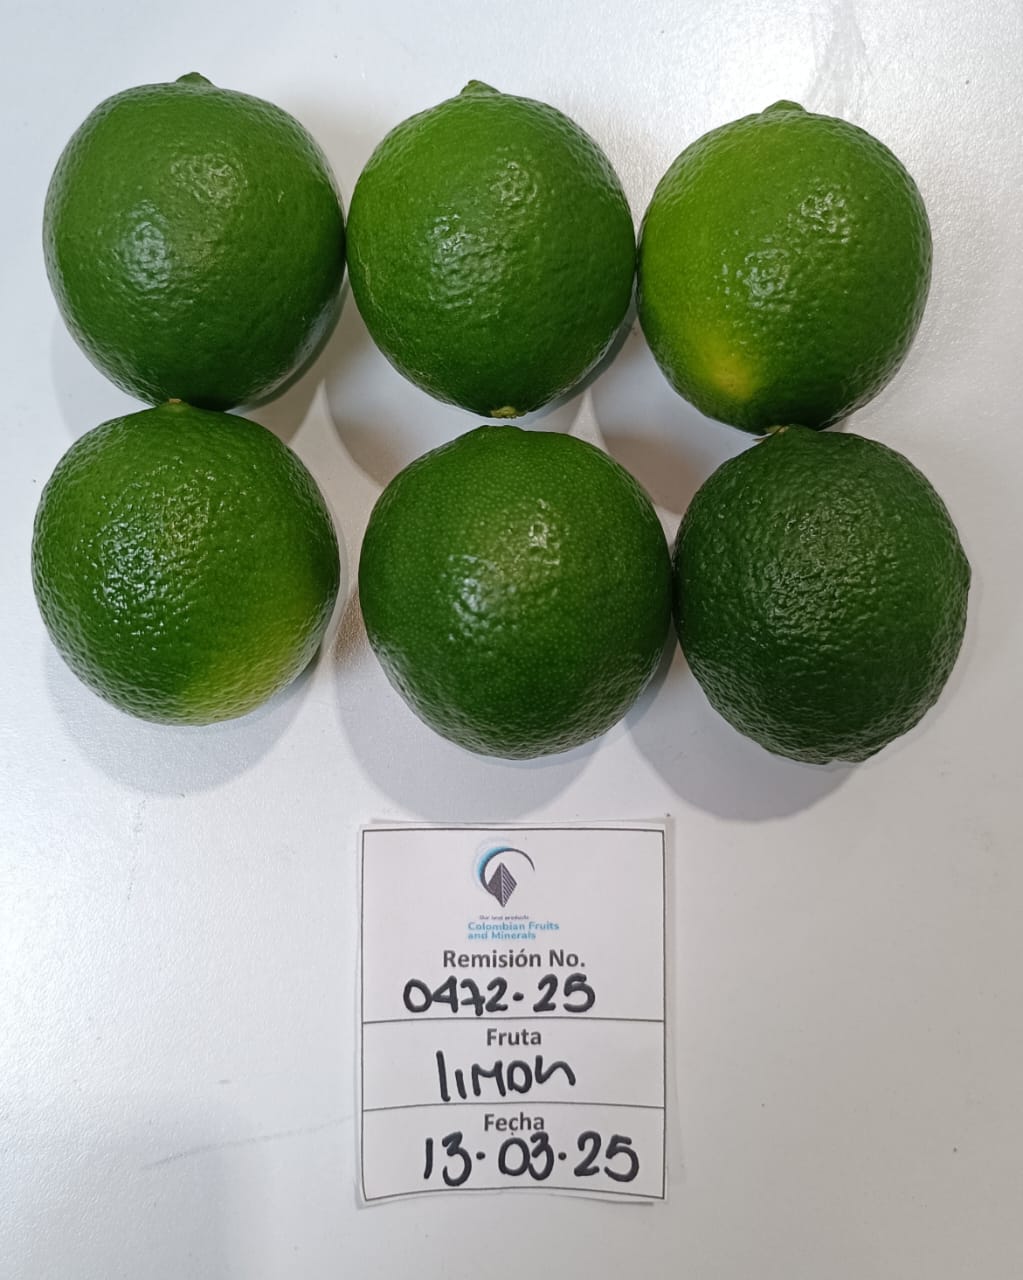 Our best products
Colombian Fruits
and Minerals
Remisión No.
0472-25
Fruta
limon
Fecha
13-03-25